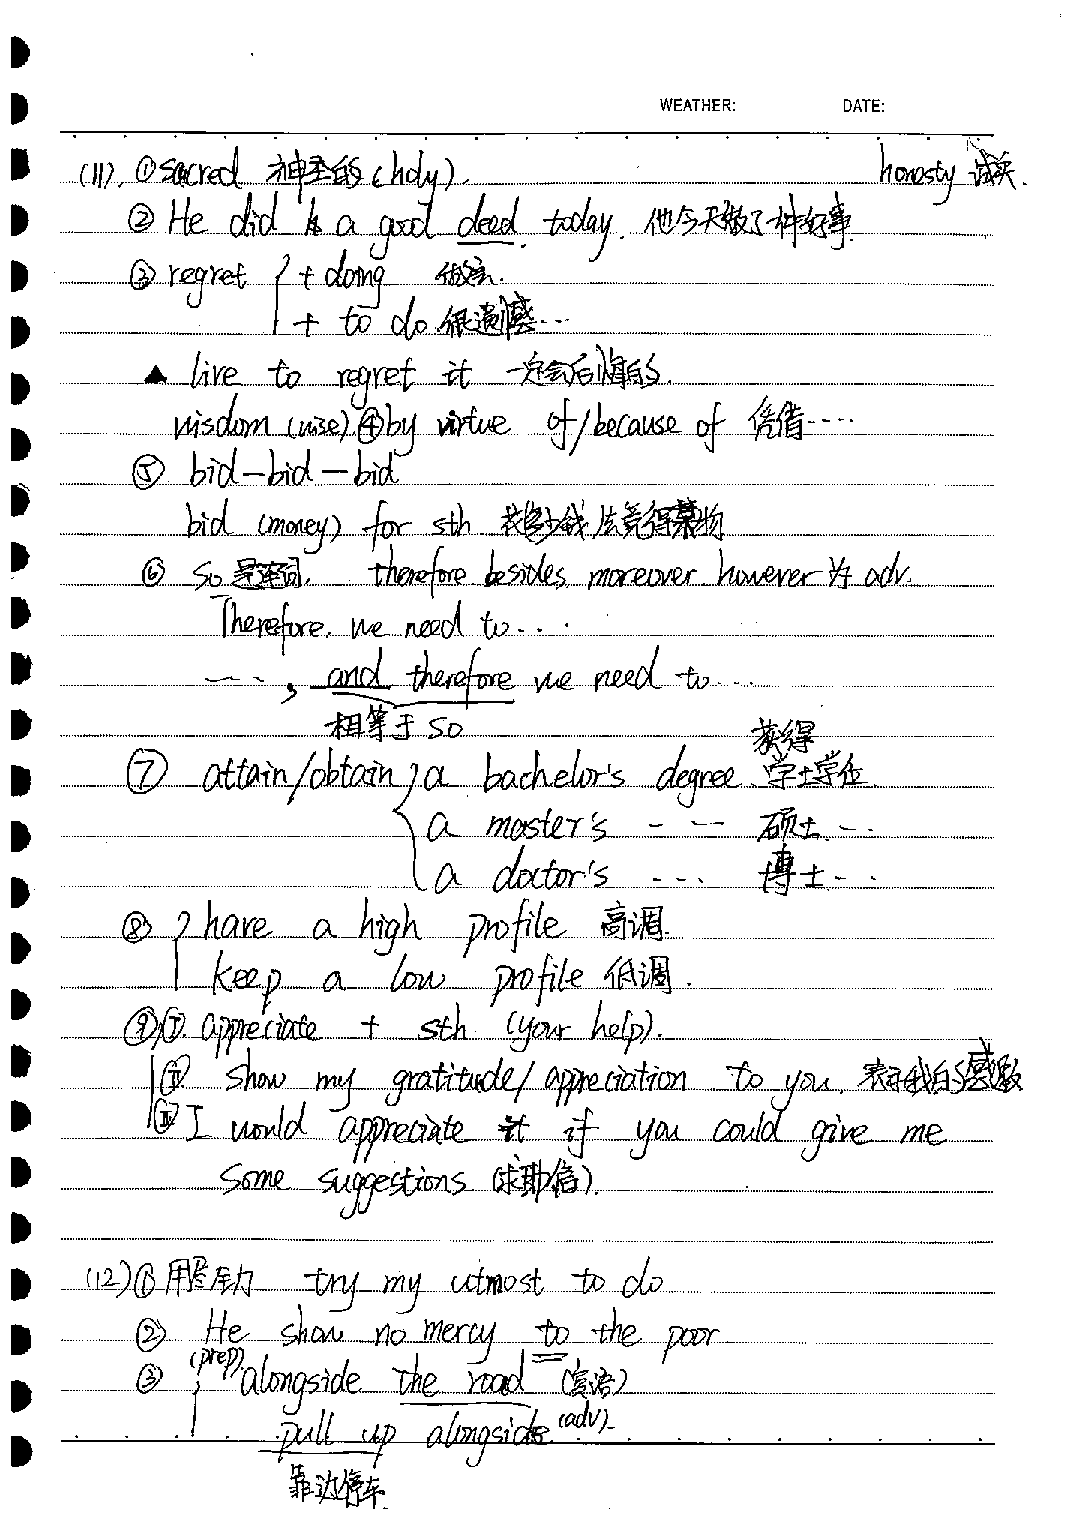 WEATHER: DATE:
(11). ①sacred 神圣的(holy). honesty 诚实.
② He did a good deed today. 他今天做了一件好事
③ regret { + doing 做完.
+ to do 很遗憾...
▲ live to regret it 一定会后悔的.
wisdom (wise) ④by virtue of/because of 凭借....
⑤ bid—bid—bid
bid (money) for sth 花多少钱去竞得某物
⑥ so 是连词. therefore besides, moreover. however 为 adv.
Therefore, we need to....
----, and therefore we need to...
相等于 so
获得
⑦ attain/obtain { a bachelor's degree. 学士学位
a master's --- 硕士...
a doctor's ... 博士...
⑧ { have a high profile 高调.
keep a low profile 低调.
⑨ Ⅰ. appreciate + sth (your help).
Ⅱ show my gratitude/appreciation to you. 表示我的感激
Ⅲ I would appreciate it if you could give me
some suggestions (求助信).
(12)① 用尽全力 try my utmost to do
② He show no mercy to the poor
③ { (prep). alongside the road (宾语)
pull up alongside. (adv).
靠边停车.